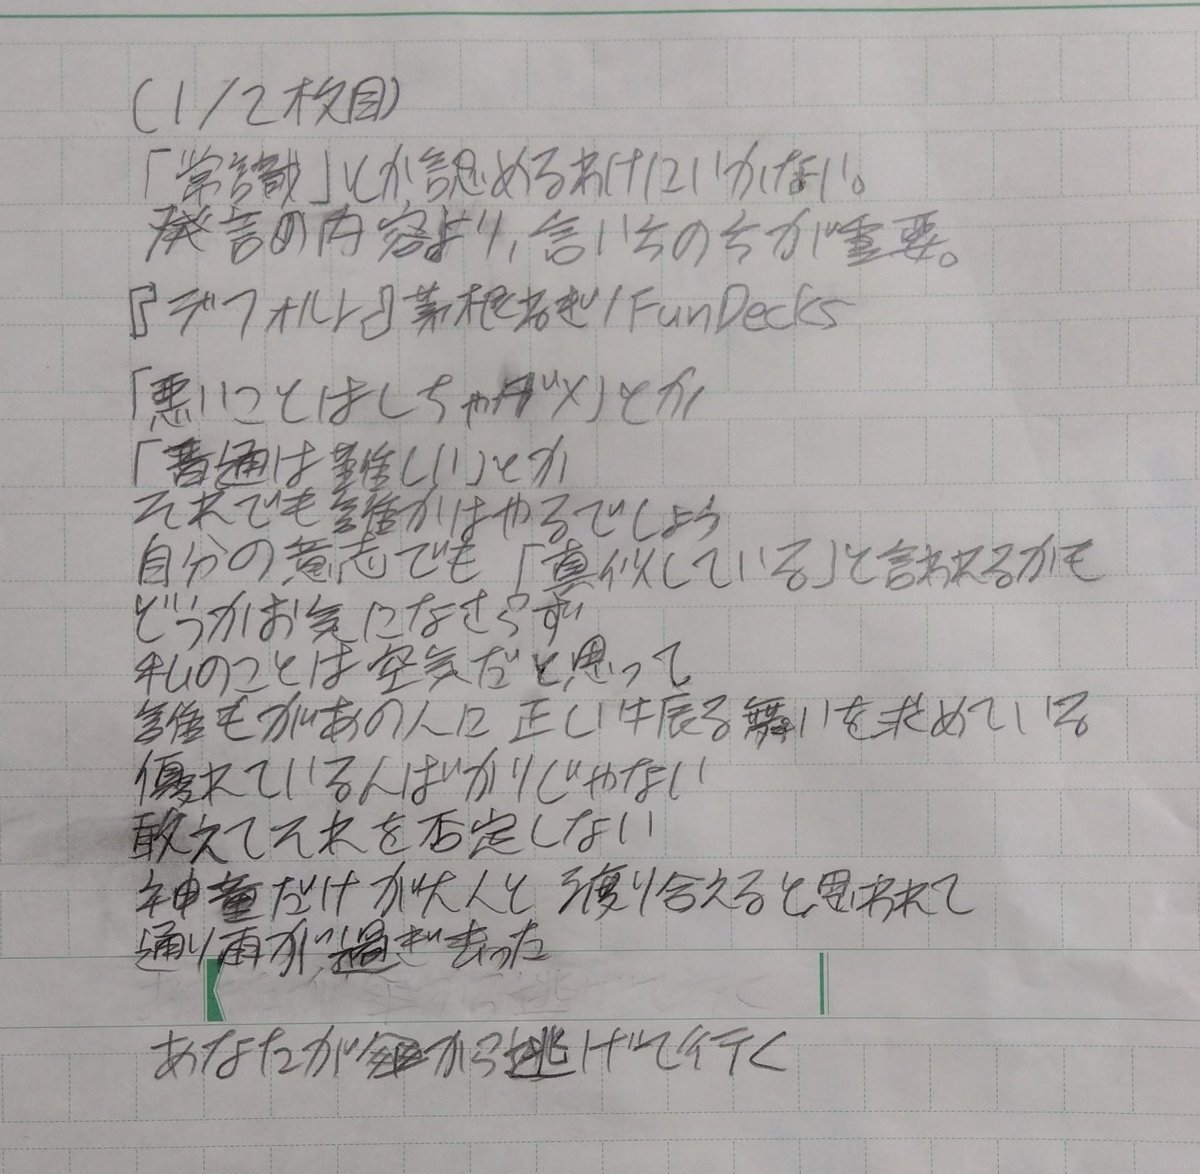 (1/2枚目)
「常識」とか認めるわけにいかない。
発言の内容より、言いそのそが重要。
『デフォルト』茅根ねぎ/FunDecks
「悪いことはしちゃダメ」とか
「普通は難しい」とか
それでも誰かはやるでしょう
自分の意志でも「真似している」と言われるかも
どうかお気になさらず
私のことは空気だと思って
誰もがあの人に正しい振る舞いを求めている
優れている人ばかりじゃない
敢えてそれを否定しない
神童だけが大人と渡り合えると思われて
通り雨が過ぎ去った
あなたが から逃げて行く